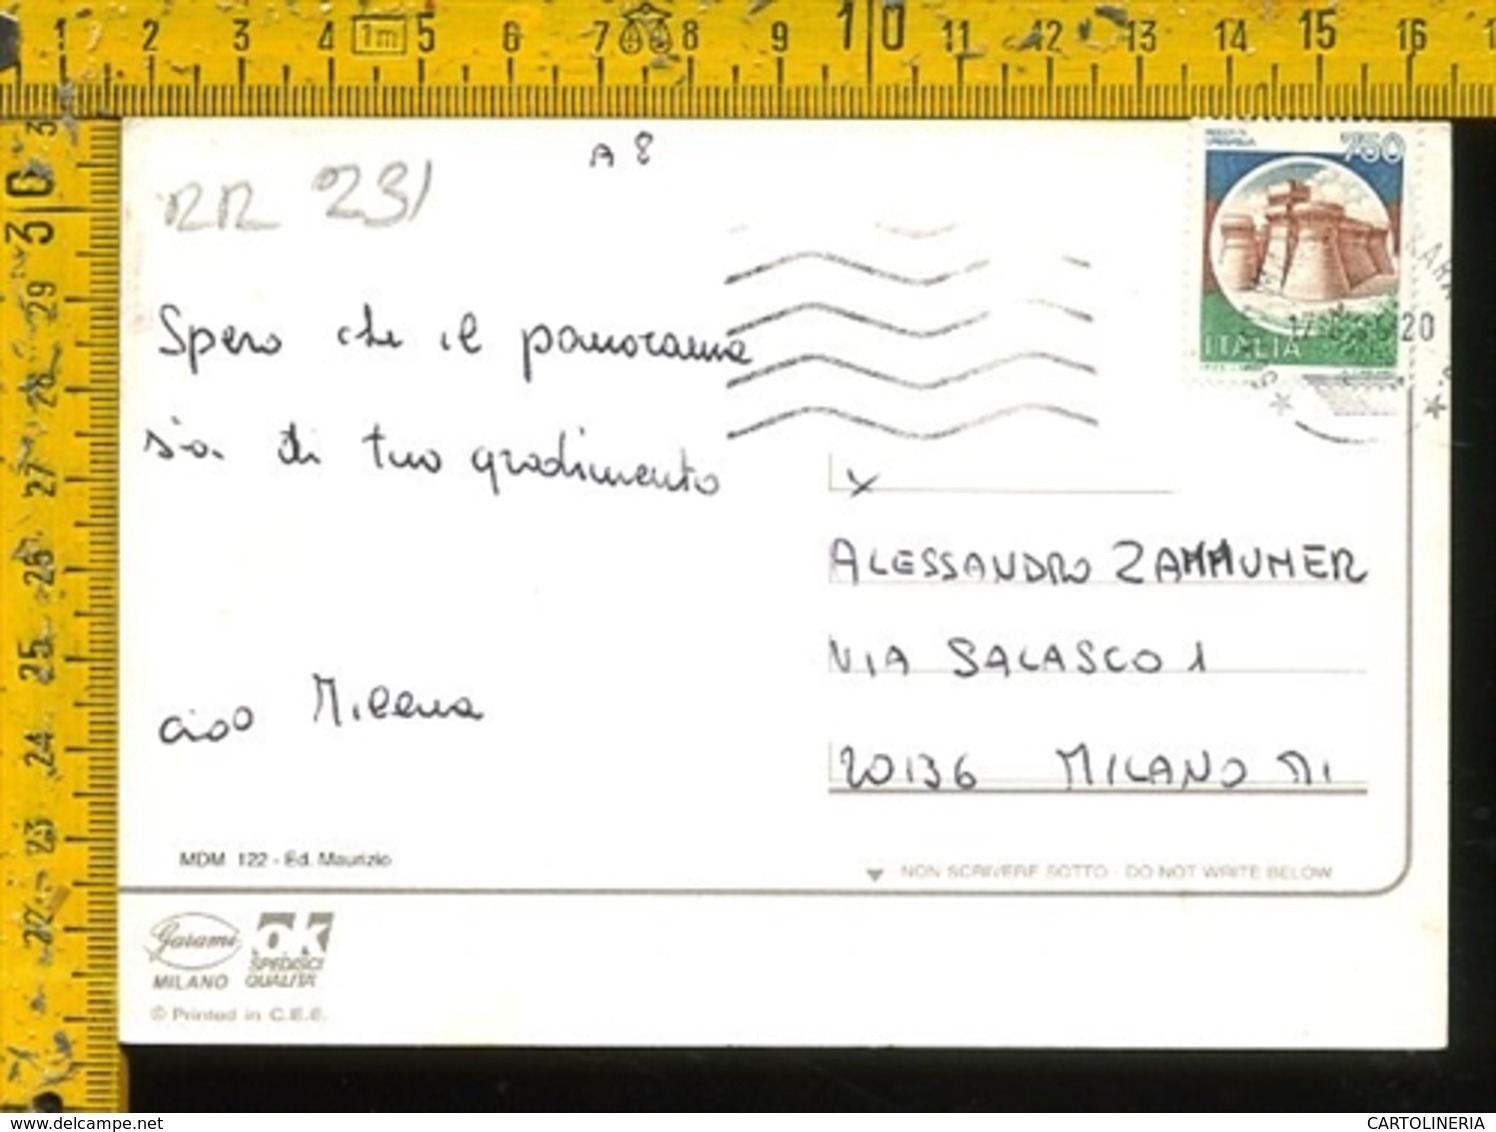 1 2 3 4 1m 5 6 7 8 9 10 11 12 13 14 15 16
A 8
RR 231
750
ITALIA
20
Spero che il panorama
sia di tuo gradimento
ciao Milena
ALESSANDRO ZAMMUNER
VIA SALASCO 1
20136 MILANO MI
MDM 122 - Ed. Maurizio
NON SCRIVERE SOTTO - DO NOT WRITE BELOW
Garami
MILANO
ok
SPEDISCI
QUALITA'
© Printed in C.E.E.
30 29 28 27 26 25 24 23 22
https://www.delcampe.net
CARTOLINERIA